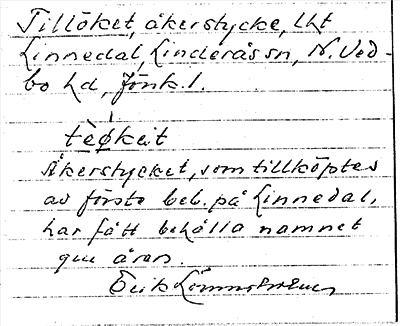 Tillöket, åkerstycke, Lht
Linnedal, Linderås sn, N. Ved-
bo hd, Jönk. l.
tèøkeit
Åkerstycket, som tillköptes
av förste beb. på Linnedal,
har fått behålla namnet
gm åren.
Erik